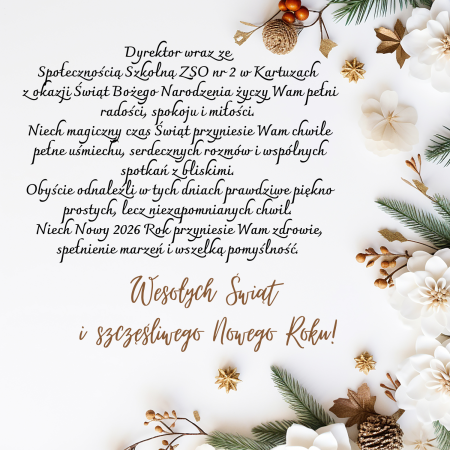 Dyrektor wraz ze
Społecznością Szkolną ZSO nr 2 w Kartuzach
z okazji Świąt Bożego Narodzenia życzy Wam pełni
radości, spokoju i miłości.
Niech magiczny czas Świąt przyniesie Wam chwile
pełne uśmiechu, serdecznych rozmów i wspólnych
spotkań z bliskimi.
Obyście odnaleźli w tych dniach prawdziwe piękno
prostych, lecz niezapomnianych chwil.
Niech Nowy 2026 Rok przyniesie Wam zdrowie,
spełnienie marzeń i wszelką pomyślność.
Wesołych Świąt
i szczęśliwego Nowego Roku!